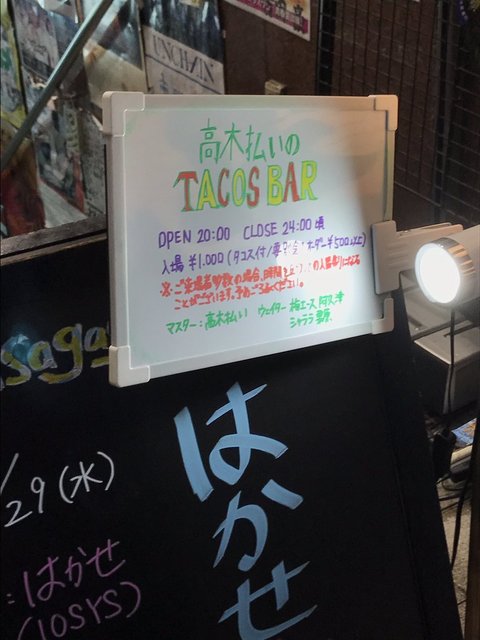 UNCHAIN
高木払いの
TACOS BAR
OPEN 20:00 CLOSE 24:00 頃
入場 ¥1,000(タコス付/要別途オーダー¥500以上)
※ご来場者多数の場合、時間を の入替制になる
ことがございます。予めご了承ください。
マスター:高木払い ウェイター 梅エース 阿久津
シャララ
saga
/29(水)
:はかせ
(10SYS)
はかせ